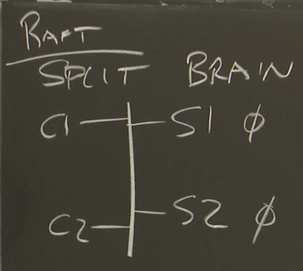 RAFT
SPLIT BRAIN
C1 S1 ϕ
C2 S2 ϕ